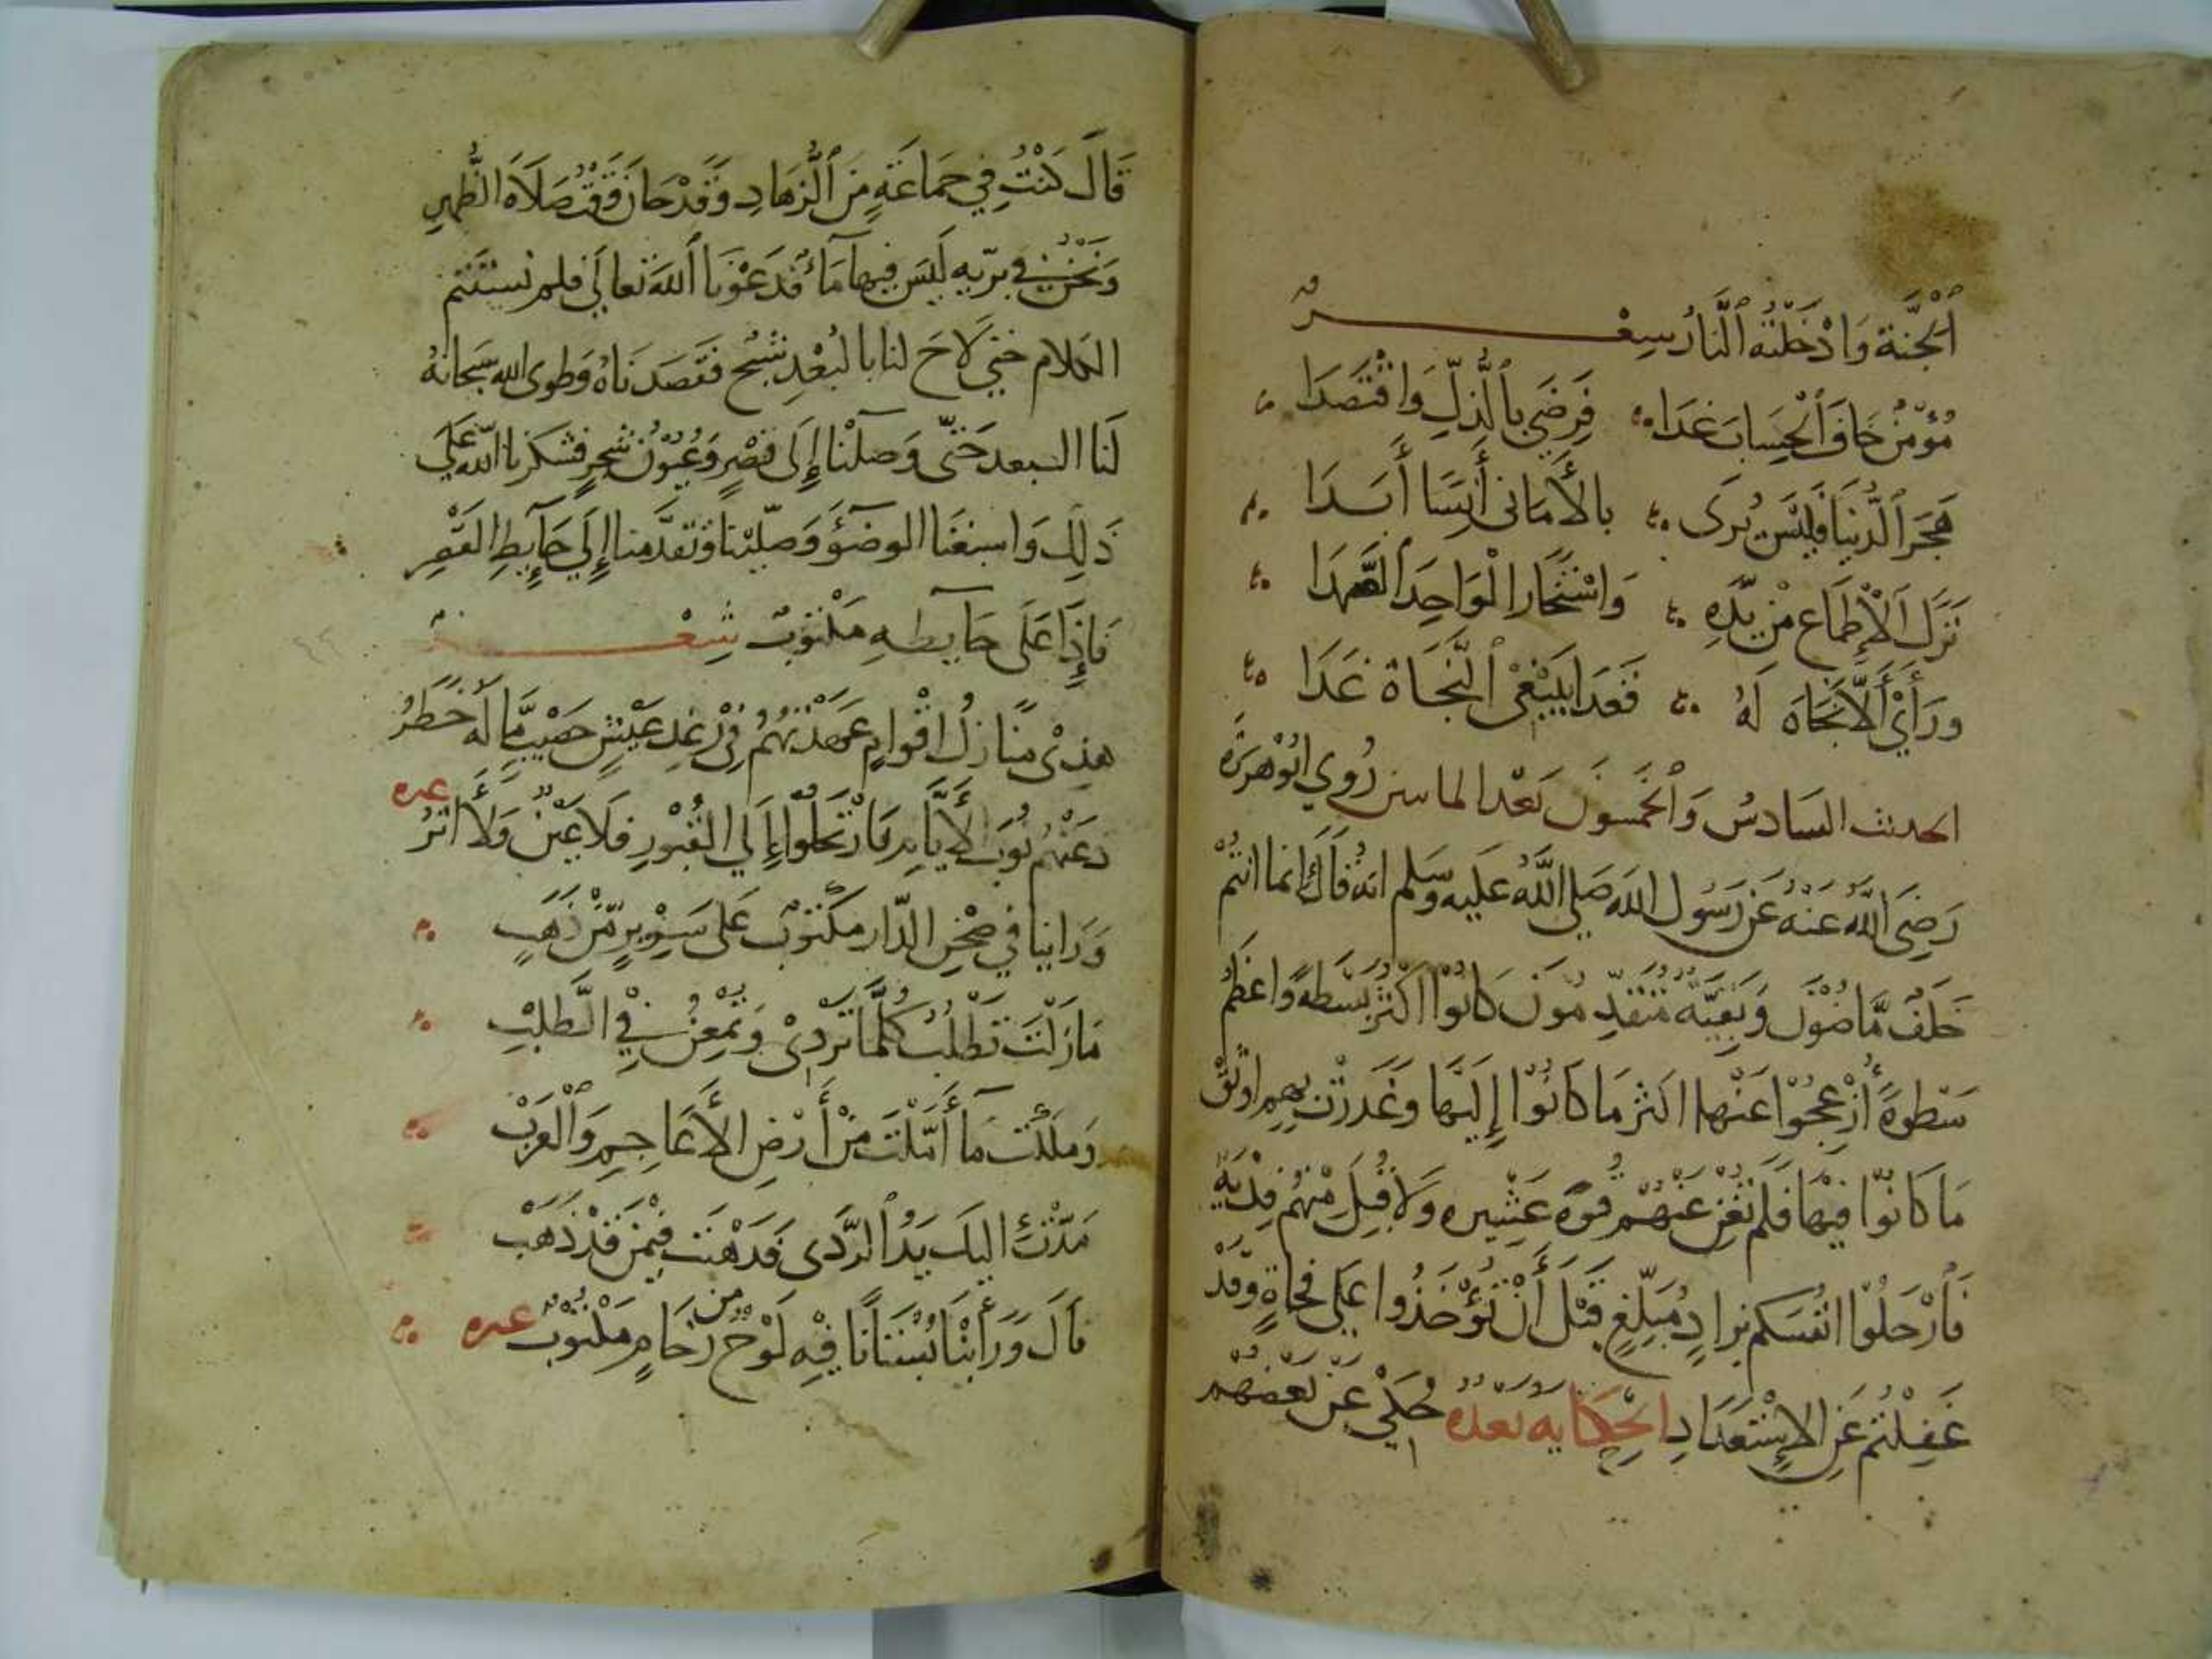 اَلْجَنَّةَ وَادْخَلَتْهُ اَلنَّارُ شِعْــــر
مُؤْمِنٌ خَافَ اَلْحِسَابَ غَدَا فَرَضِيَ بِالذُّلِّ وَاقْتَصَدَا
هَجَرَ الدُّنْيَا فَلَيْسَ يُرَى بِالأَمَانِي أَنِسًا أَبَدَا
نَزَلَ الْأَطْمَاعَ مِنْ يَدِّهِ وَاسْتَخَارَ الْوَاحِدَ الصَّمَدَا
وَرَأَى أَلَّا نَجَاةَ لَهُ فَغَدَا يَبْتَغِي النَّجَاةَ غَدَا
الحديث السَادسُ وَالْخَمسُونَ بَعْدَ الماتين رُوي ابُوْهُرَيْرَه
رَضِيَ اللَّهُ عَنْهُ عَنْ رَسُول اللَه صَلى اللَّهُ عَلَيه وَسَلم انهُ قَالَ إنما انتُمْ
خَلَفُ مَّاضُوْنَ وَبَقِيَّةُ مُتَقَدِّمُونَ كَانُوْا اكْثَرَ بَسْطَةً وَاعْظَمَ
سَطْوَةً أُزْعِجُوْا عَنْهَا اكثر مَا كَانُوْا إِلَيْهَا وَغَدَرَتْ بِهِم اوْثَقَ
مَا كَانُوْا فِيْهَا فَلَمْ تُغْنِ عَنْهُمْ قُوَّةُ عَشِيره وَلَا قُبِلَ مِنْهُمْ فِدْيَةٌ
فَارْحَلُوْا انفُسَكم بزادٍ مُبَلِّغٍ قَبْلَ أَنْ تُؤْخَذُوا عَلَى فُجَاةٍ وَقَدْ
غَفِلْتُمْ عَنِ الإِسْتِعْدَادِ الْحِكَايَه بَعْدَهُ حُكِيَ عَنْ بَعْضِهِم
قَالَ كُنْتُ فِي جَمَاعَةٍ مِنَ الزُّهَادِ وَقَدْ حَانَ وَقْتُ صَلَاة الظُّهرِ
وَنَحْنُ فِي بَرّيه لَيْسَ فِيهَا مَاءٌ فَدَعَوْنَا اللَهَ تَعَالَى فلم نستتم
الكلام حَتى لَاحَ لنا بالبُعْدِ شَبَح فَقَصَدنَاهُ وَطوى الله سُبحَانهُ
لَنَا البعد حَتّى وَصَلْنَا إِلَى قَصْرٍ وَعُيُوْن شَجرٍ فَشكرنا اللّه عَلَى
ذَلِكَ وَاسبَغنَا الوضوْءَ وَصَلّيْنا وَتقدَّمنا إِلَى حَايِطِ القَصْر
فَاِذَا عَلَى حَايطِهِ مَكْتُوْبٌ شِعْــــر
هذِيْ مَنَازِلُ اقْوَامٍ عَهِدْتُهُمُ فِيْ رَغدِ عَيْشٍ خَصيْبٍ مَّا لَه خَطَرُ
دَعَتْهُم نُوَب الأيَّامِ فَارْتَحَلُوْا إِلَى القُبُوْرِ فَلَا عَيْنٌ وَلَا أَثَرُ غيره
وَرَاينا في صَحْنِ الدّار مَكْتُوْب عَلَى سَرِيْرٍ مِّنْ ذَهَبٍ
مَا زِلْتَ تَطْلُبُ كُلَّمَا تُرْدِيْ وَتُمْعِنُ فِي الطَّلَبِ
وَمَلَكْتَ مَا أَمَّلْتَ مِنْ أَرْضِ الأَعَاجِمِ وَالْعَرَبْ
مَدَّتْ اليك يَدُ الرَّدَى فَذَهَبْتَ فِيْمَنْ قَدْ ذَهَبْ
قَالَ وَرَايْنَا بُسْتَانًا فِيْهِ لَوْحٌ من رُخَامٍ مَكْتُوْبٌ غيره